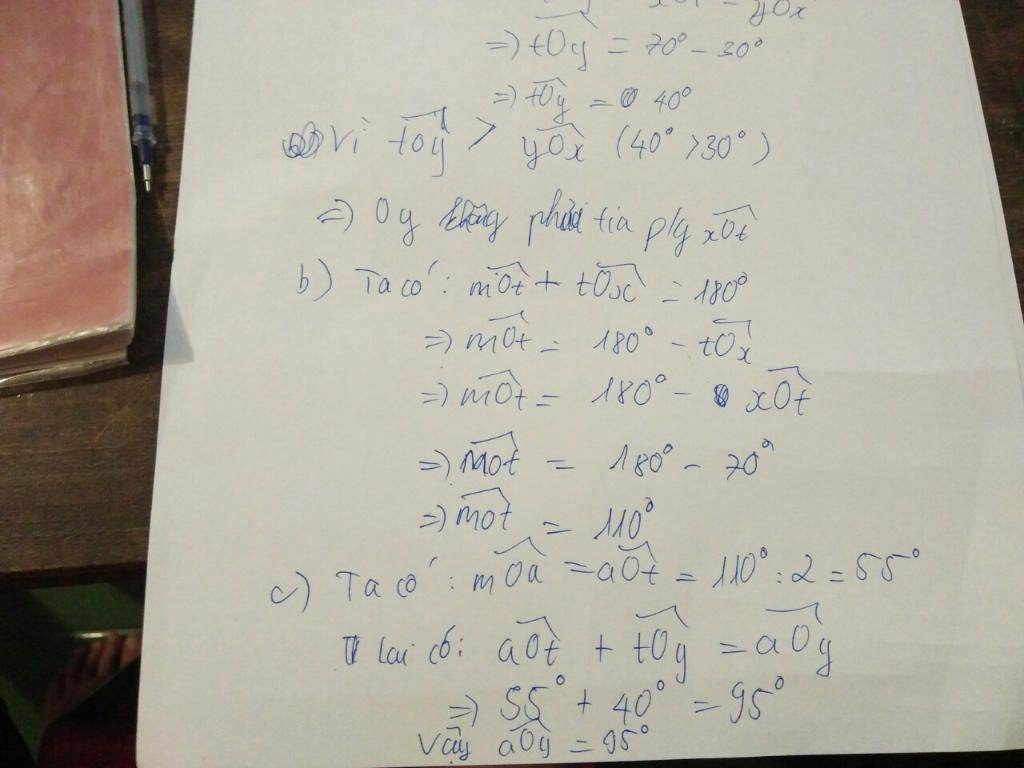 yOx
⇒) tOy = 70° - 30°
⇒) tOy = 40°
Vì tOy > yOx (40° > 30°)
⇒) Oy không phải tia p/g xOt
b) Ta có: mOt + tOx = 180°
⇒) mOt = 180° - tOx
⇒) mOt = 180° - xOt
⇒) mOt = 180° - 70°
⇒) mOt = 110°
c) Ta có: mOa = aOt = 110° : 2 = 55°
lại có: aOt + tOy = aOy
⇒) 55° + 40° = 95°
Vậy aOy = 95°